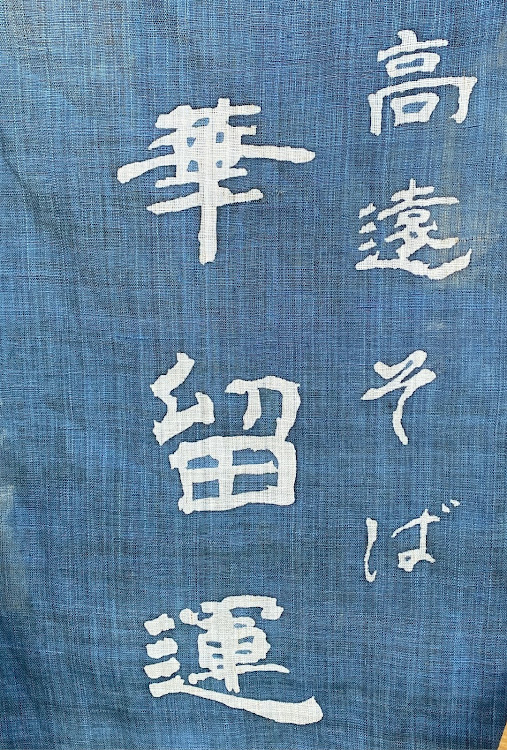 高遠そば
華留運